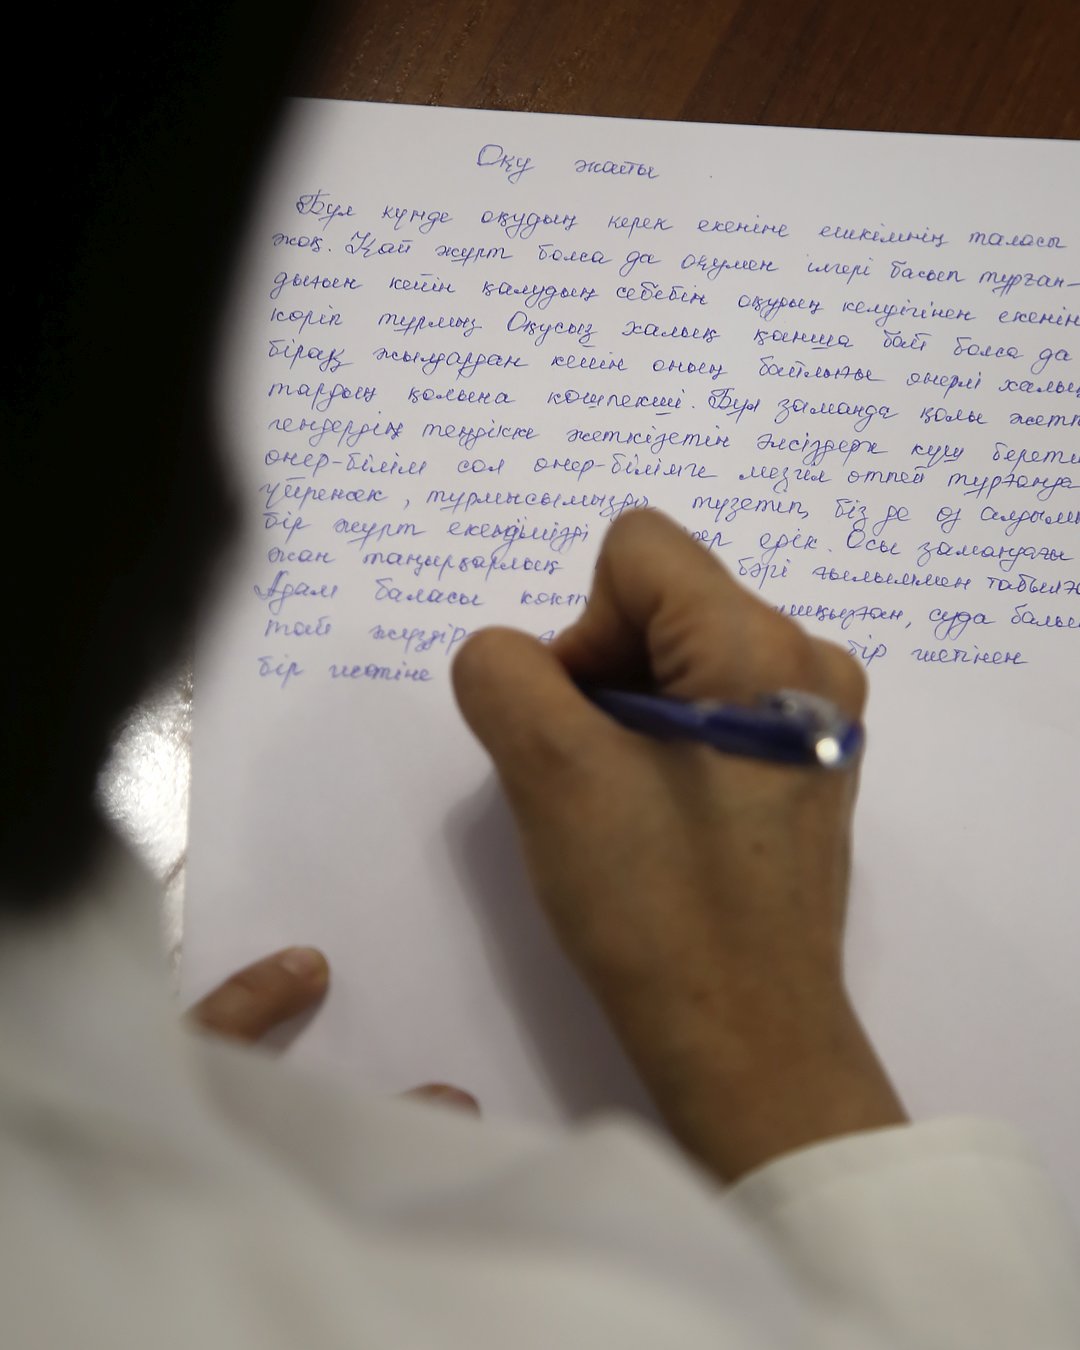 Оқу жайы
Бұл күнде оқудың керек екеніне ешкімнің таласы
жоқ. Қай жұрт болса да оқумен ілгері басып тұрған-
дығын кейін қалудың себебін оқудың кемдігінен екенін
көріп тұрмыз Оқусыз халық қанша бай болса да
бірақ жылдардан кейін оның байлығы өнерлі халық
тардың қолына көшпекші. Бұл заманда қолы жетп
гендердің теңдікке жеткізетін әлсіздерге күш беретін
өнер-білім сол өнер-білімге мезгіл өтпей тұрғанда
үйренсек, тұрмысымызды түзетіп, біз де өз алдымы
бір жұрт екендімізді едік. Осы замандағы
жан таңырқарлық бәрі ғылыммен табылға
Адам баласы көкт ұшқызған, суда балы
тай жүздір бір шетінен
бір шетіне